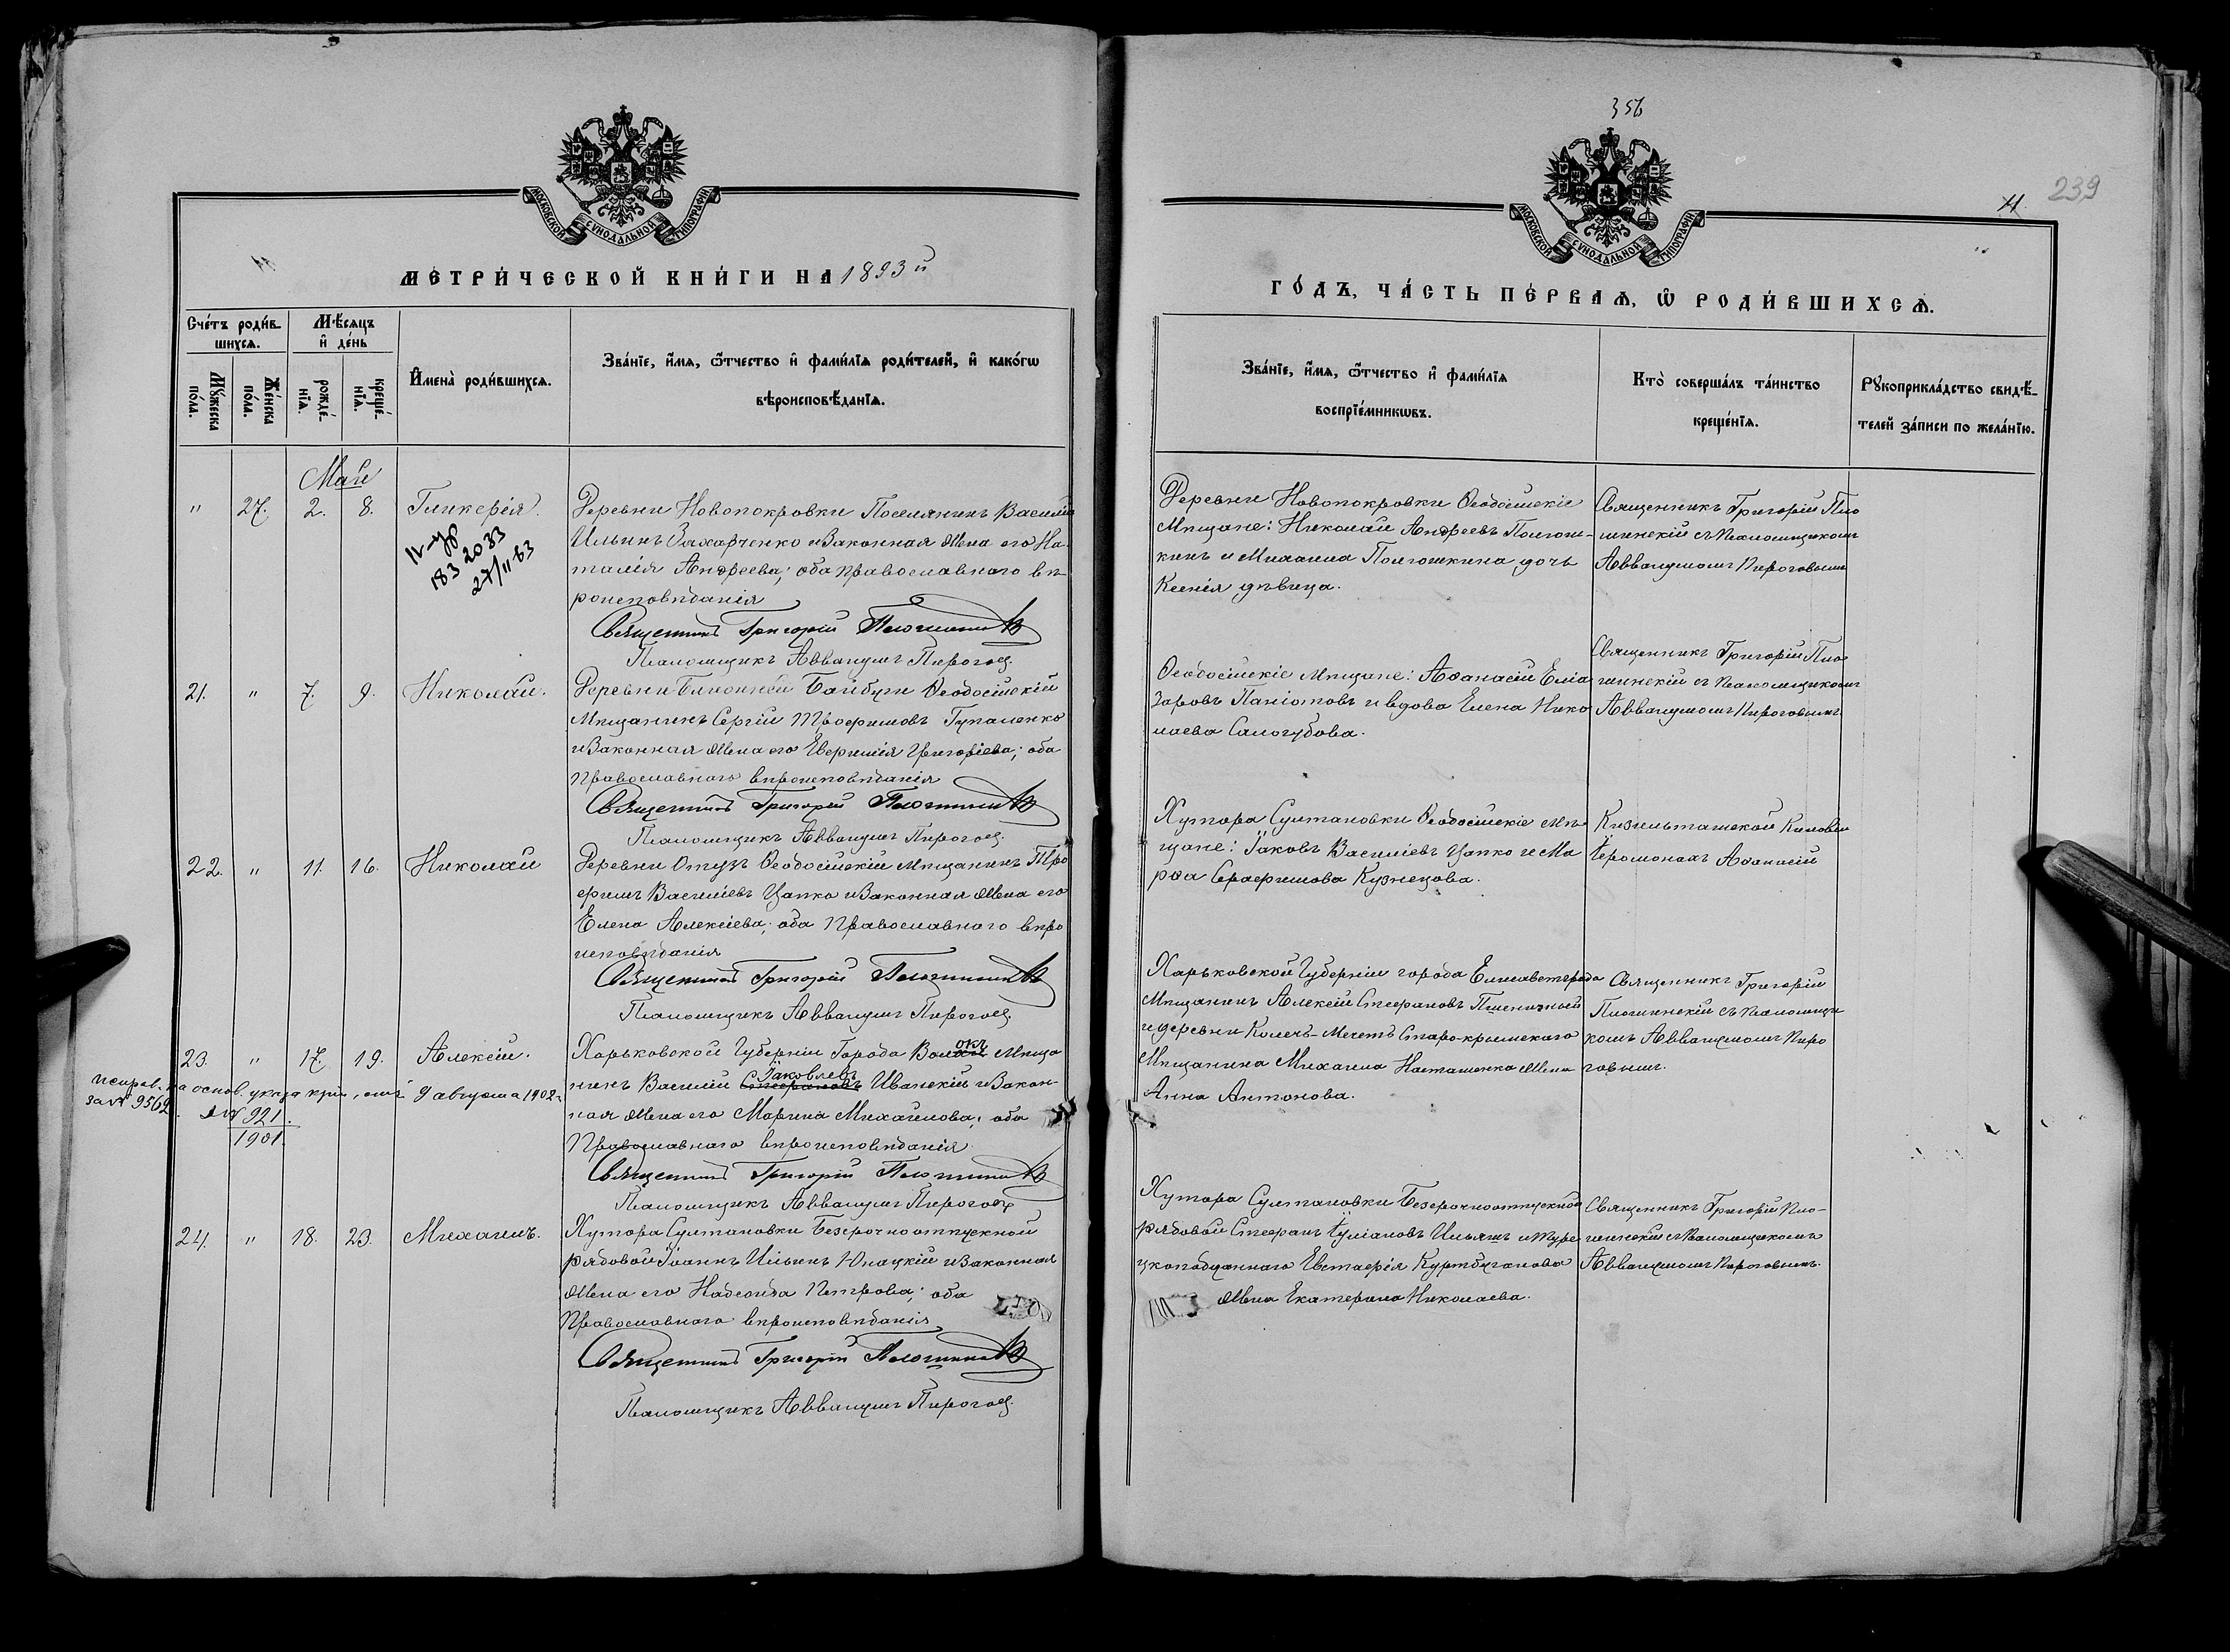 356
239
11.
МОСКОВСКОЙ СѴНОДАЛЬНОЙ ТИПОГРАФІИ
МЕТРИ́ЧЕСКОЙ КНИ́ГИ НА 1893 й
Сче́тъ роди́в-
шихсѧ.
Мѣ́сѧцъ
и҆ де́нь
Мꙋ́жеска
по́ла.
Же́нска
по́ла.
рожде́-
нїѧ.
креще́-
нїѧ.
И҆мена̀ роди́вшихсѧ.
Зва́нїе, и҆́мѧ, ѻ҆́тчество и҆ фами́лїѧ роди́телей, и҆ како́гѡ
вѣроисповѣ́данїѧ.
Май
" 27. 2. 8. Гликерія.
183 2033
27/II-83
Деревни Новопокровки Поселянинъ Василій
Ильинъ Захарченко и Законная жена его На-
талія Андреева; оба православнаго вѣ-
роисповѣданія
Священникъ Григорій
Псаломщикъ Аввакумъ Пироговъ.
21. " 7. 9. Николай.
Деревни Ближней Байбуги Ѳеодосійскій
Мѣщанинъ Сергій Трофимовъ Гупаленко
и Законная жена его Евфимія Григоріева; оба
Православнаго вѣроисповѣданія
Священникъ Григорій
Псаломщикъ Аввакумъ Пироговъ.
22. " 11. 16. Николай
Деревни Отузъ Ѳеодосійскій мѣщанинъ Тро
фимъ Василіевъ Цапко и Законная жена его
Елена Алексіева; оба Православнаго вѣро
исповѣданія
Священникъ Григорій
Псаломщикъ Аввакумъ Пироговъ.
23. " 17. 19. Алексій.
исправ. на основ. указа кр. , отъ 9 августа 1902 г.
за № 9562. № 921.
1901.
Харьковской Губерніи Города Мѣща
Іаковлевъ
нинъ Василій Стефановъ Иванскій и Закон-
ная жена его Марина Михайлова; оба
Православнаго вѣроисповѣданія.
Священникъ Григорій
Псаломщикъ Аввакумъ Пироговъ
24. " 18. 23. Михаилъ.
Хутора Султановки Безсрочноотпускной
рядовой Іоаннъ Ильинъ Юнацкій и Законная
жена его Надежда Петрова; оба
Православнаго вѣроисповѣданія
Священникъ Григорій
Псаломщикъ Аввакумъ Пироговъ.
МОСКОВСКОЙ СѴНОДАЛЬНОЙ ТИПОГРАФІИ
ГО́ДЪ, ЧА́СТЬ ПЕ́РВАѦ, Ѽ РОДИ́ВШИХСѦ.
Зва́нїе, и҆́мѧ, ѻ҆́тчество и҆ фами́лїѧ
воспрїе́мникѡвъ.
Кто̀ соверша́лъ та́инство
креще́нїѧ.
Рꙋкоприкла́дство свидѣ́-
телей за́писи по жела́нїю.
Деревни Новопокровки Ѳеодосійскіе
Мѣщане: Николай Андреевъ Полюш-
кинъ и Михаила Полюшкина дочь
Ксенія дѣвица.
Священникъ Григорій Пло
шинскій съ Псаломщикомъ
Аввакумомъ Пироговымъ
Ѳеодосійскіе Мѣщане: Аѳанасій Еліа
заровъ Паніотовъ и вдова Елена Нико
лаева Салогубова.
Священникъ Григорій Пло
шинскій съ Псаломщикомъ
Аввакумомъ Пироговымъ.
Хутора Султановки Ѳеодосійскіе мѣ-
щане: Іаковъ Василіевъ Цапко и Ма
рѳа Серафимова Кузнецова.
Кизильташской Киновіи
Іеромонахъ Аѳанасій
Харьковской Губерніи города Елисаветграда
Мѣщанинъ Алексій Стефановъ Пшеничный
и деревни Колечь-Мечеть Старо-крымскаго
Мѣщанина Михаила Насташенка жена
Анна Антонова.
Священникъ Григорій
Плошинскій съ Псаломщи
комъ Аввакумомъ Пиро
говымъ.
Хутора Султановки Безсрочноотпускной
рядовой Стефанъ Іуліановъ Ильяшъ и Туре
цкоподданнаго Евстафія Куртбуганова
жена Екатерина Николаева.
Священникъ Григорій Пло-
шинскій съ Псаломщикомъ
Аввакумомъ Пироговымъ.